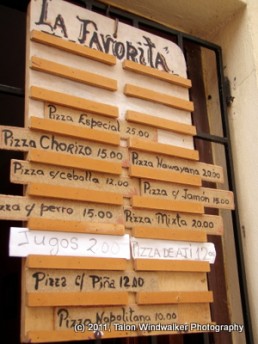 La Favorita
Pizza Especial 25.00
Pizza Chorizo 15.00
Pizza Hawayana 20.00
Pizza c/ceballa 12.00
Pizza c/ Jamón 15.00
Pizza c/perro 15.00
Pizza Mixta 20.00
Jugos 2.00
PIZZA DE AJI 12.00
Pizza c/ Piña 12.00
Pizza Napolitana 10.00
(c) 2011, Talon Windwalker Photography